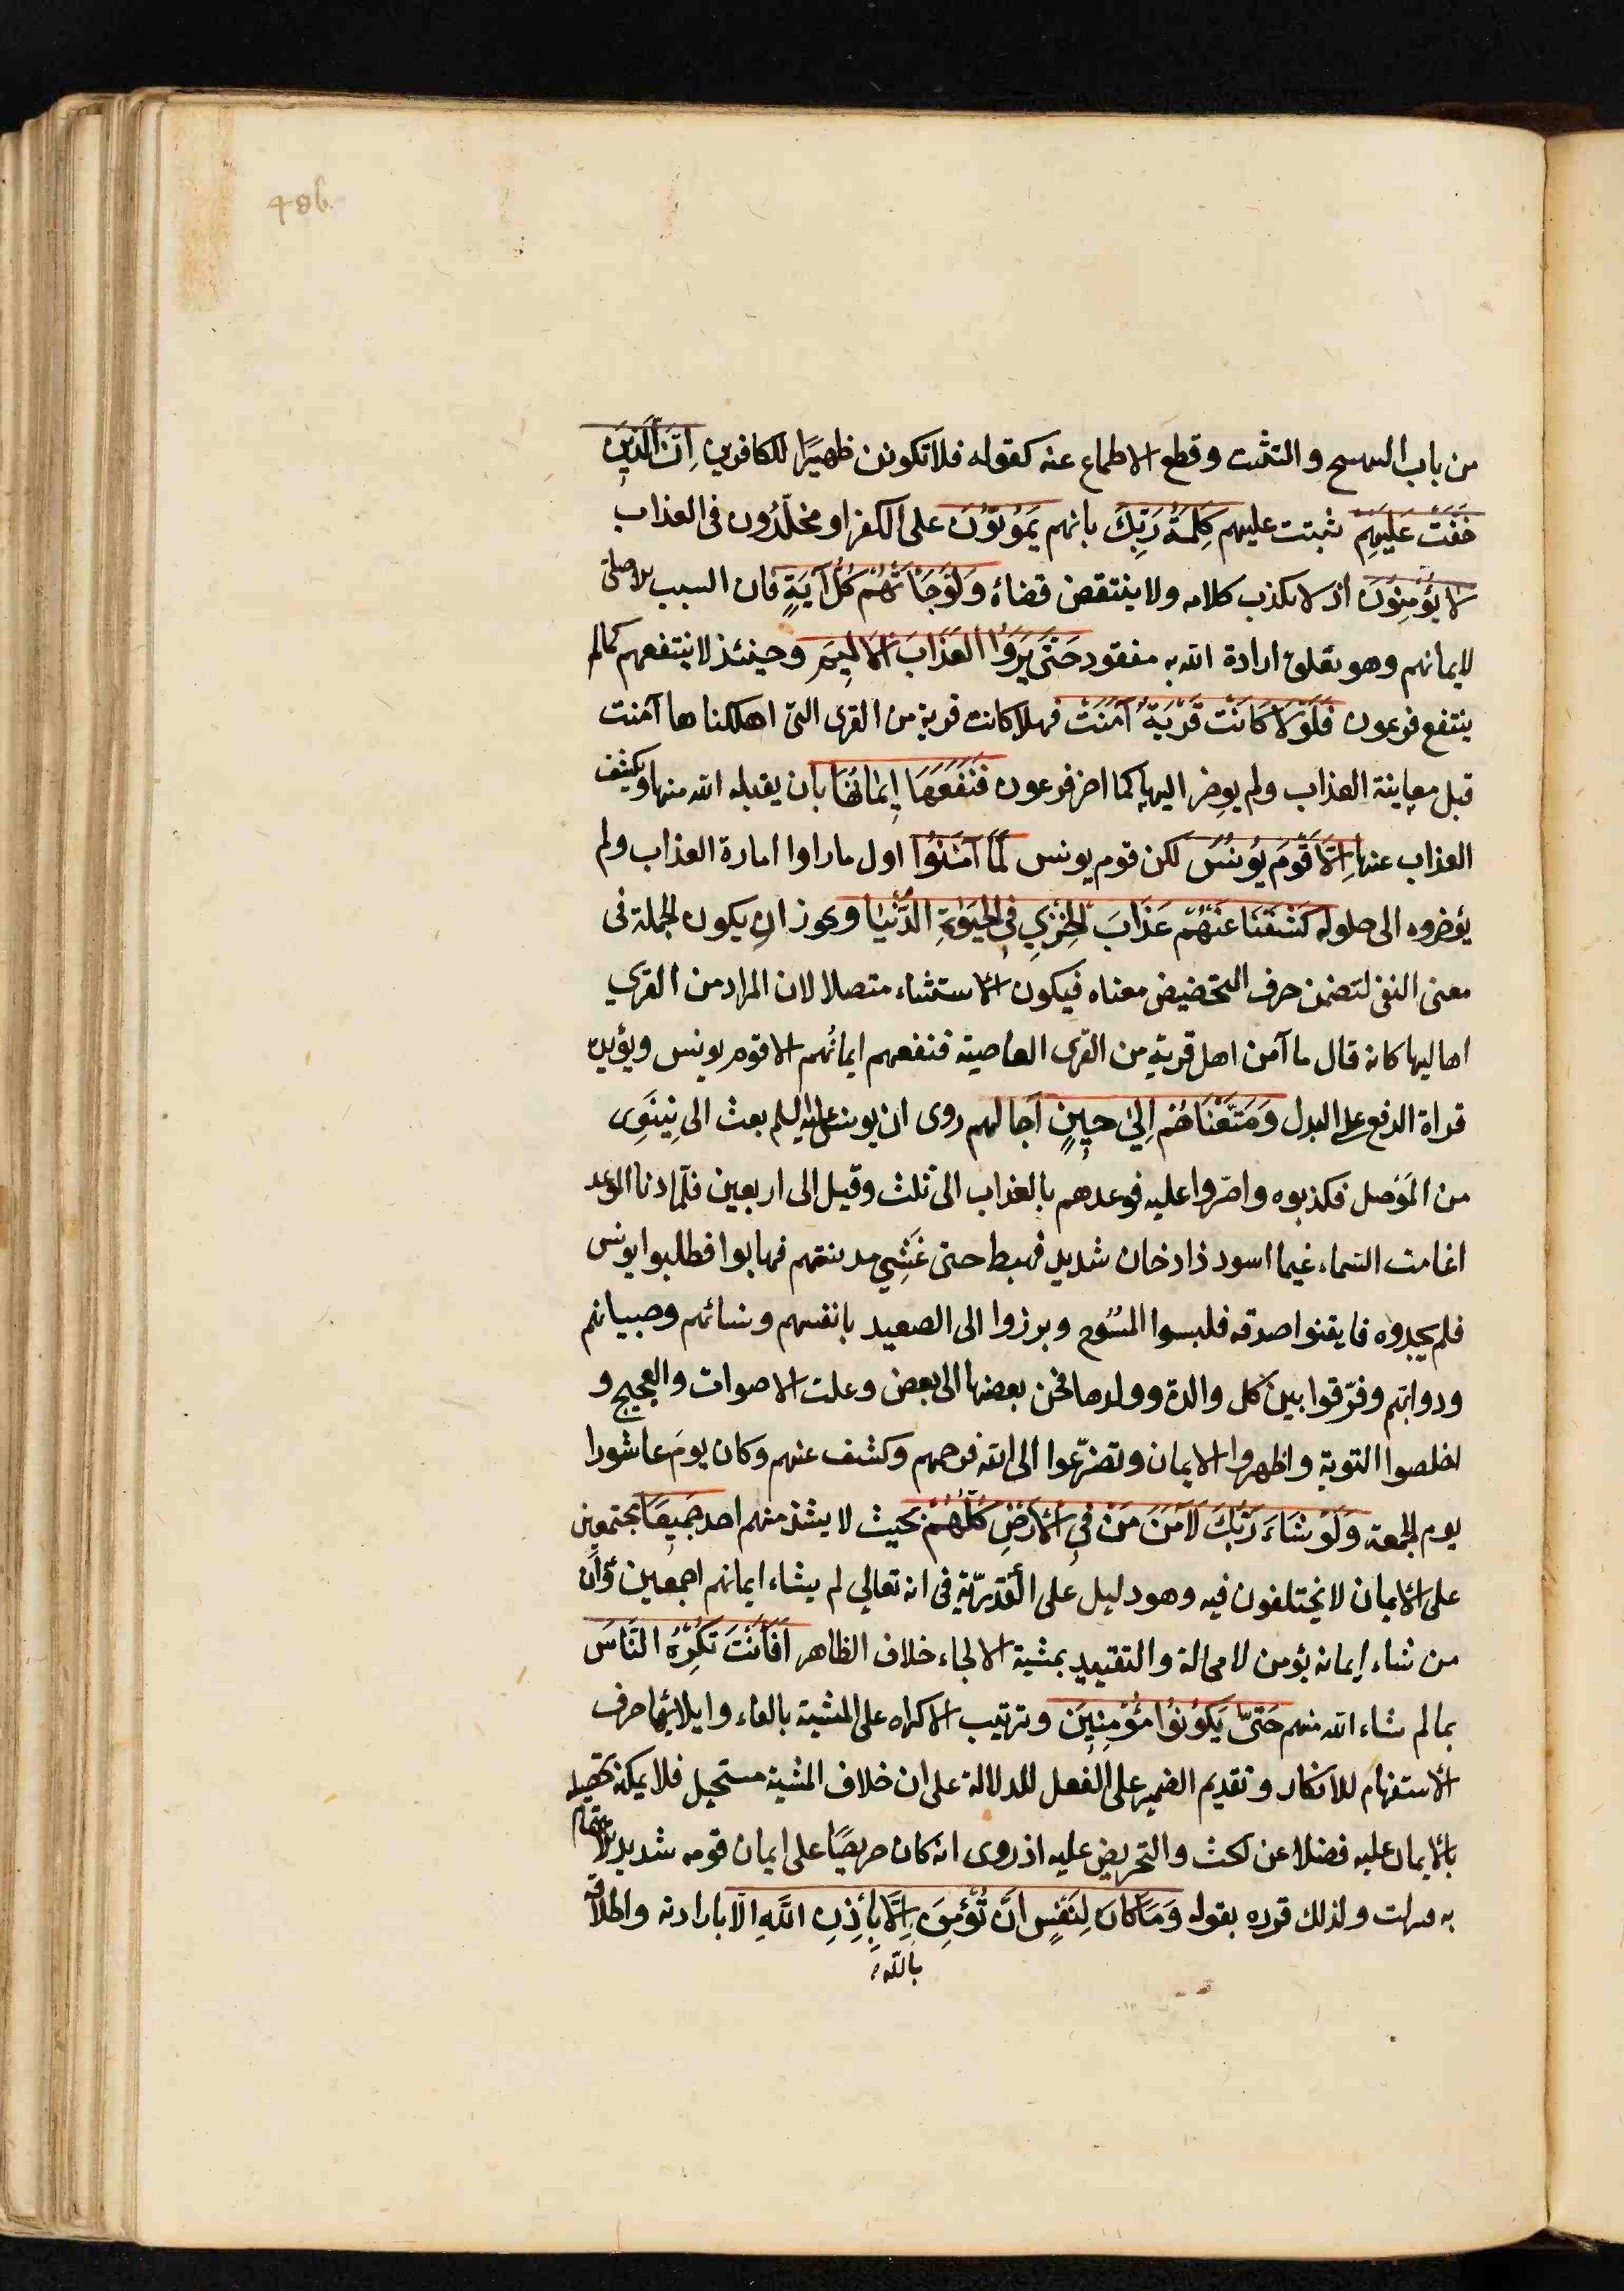 486
من باب التهييج والتثبيت وقطع الاطماع عنه كقوله فلا تكونن ظهيرًا للكافرين اِنَّ الَّذِينَ
حَقَّتْ عَلَيْهِمْ ثبتت عليهم كَلِمَةُ رَبِّكَ بانهم يَمُوتُونَ على الكفر او مخلّدُون فى العذاب
لا يُؤْمِنُونَ اذ لا يكذب كلامه ولا ينتقض قضاؤه وَلَوْ جَاءَتْهُمْ كُلُّ آيَةٍ فان السبب الاصلى
لايمانهم وهو تعلق ارادة الله به مفقود حَتَّى يَرَوُا الْعَذَابَ الْاَلِيمَ وحينئذ لا ينتفعهم كما لم
ينتفع فرعون فَلَوْلَا كَانَتْ قَرْيَةٌ آمَنَتْ فهلا كانت قرية من القرى التى اهلكناها آمنت
قبل معاينة العذاب ولم يوخر اليها كما اخر فرعون فَنَفَعَهَا اِيمَانُهَا بان يقبله الله منها ويكشف
العذاب عنها اِلَّا قَوْمَ يُونُسَ لكن قوم يونس لَمَّا آمَنُوا اول ما راوا امارة العذاب ولم
يؤخروه الى حلوله كَشَفْنَا عَنْهُمْ عَذَابَ الْخِزْيِ فِي الْحَيٰوةِ الدُّنْيَا ويجوز ان يكون الجملة فى
معنى النفى لتضمن حرف التحضيض معناه فيكون الاستثناء متصلا لان المراد من القرى
اهاليها كانه قال ما آمن اهل قرية من القرى العاصية فنفعهم ايمانُهم الا قوم يونس ويؤيده
قراة الرفع على البدل وَمَتَّعْنَاهُمْ اِلَى حِينٍ آجالهم روى ان يونس عليه السلم بعث الى نِينَوِى
من المَوْصل فكذبوه واصرّوا عليه فوعدهم بالعذاب الى ثلث وقيل الى اربعين فلمّا دنا الوعد
اغامت السّماء غيما اسود ذا دخان شديد فهبط حتى غَشِيَ مدينتهم فهابوا فطلبوا يونس
فلم يجدوه فايقنوا صدقه فلبسوا المُسُوح وبرزوا الى الصعيد بانفسهم ونسائهم وصبيانهم
ودوابّهم وفرّقوا بين كل والدة وولدها فحن بعضها الى بعض وعلت الاصوات والعجيج و
اخلصوا التوبة واظهروا الايمان وتضرّعوا الى الله فرحمهم وكشف عنهم وكان يومَ عاشورا
يوم الجمعة وَلَوْ شَاءَ رَبُّكَ لَآمَنَ مَنْ فِي الْاَرْضِ كُلُّهُمْ بحيث لا يشذ منهم احد جَمِيعًا مجتمعين
على الايمان لا يختلفون فيه وهو دليل على القَدَرِيّة فى انه تعالي لم يشاء ايمانهم اجمعين وَأَنّ
من شاء ايمانه يؤمن لا محالة والتقييد بمشية الالجاء خلاف الظاهر اَفَاَنْتَ تُكْرِهُ النَّاسَ
بما لم شاء الله منهم حَتّى يَكُونُوا مُؤْمِنِينَ وترتيب الاكراه على المشية بالفاء وايلائها حرف
الاستفهام للانكار وتقديم الضمير على الفعل للدلالة على ان خلاف المشية مستحيل فلا يمكنه تحصيله
بالايمان عليه فضلا عن الحث والتحريض عليه اذ روى انه كان حريصًا على ايمان قومه شديد الاهتمام
به فنزلت ولذلك قرره بقوله وَمَا كَانَ لِنَفْسٍ اَنْ تُؤْمِنَ اِلَّا بِاِذْنِ اللَّهِ الّا بارادته واطلاقه
بالله